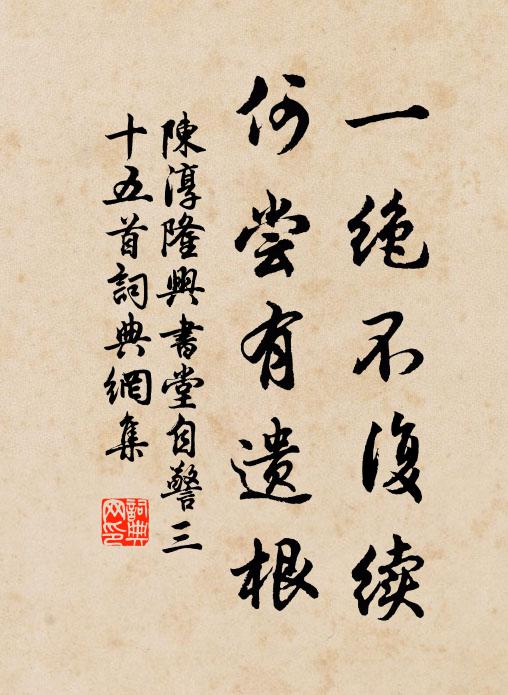 一绝不復续
何尝有遗根
陳淳隆興書堂自警三
十五首詞典網集
詞典
网印